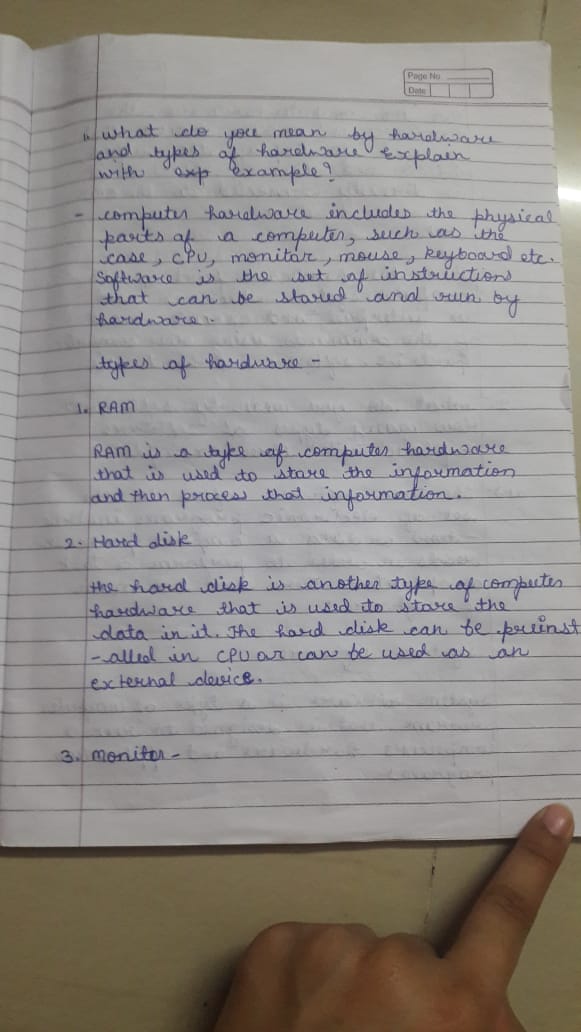 Page No
Date
1. what do you mean by hardware
and types of hardware explain
with exp example?
- computer hardware includes the physical
parts of a computer, such as the
case, CPU, monitor, mouse, keyboard etc.
Software is the set of instructions
that can be stored and run by
hardware.
types of hardware -
1. RAM
RAM is a type of computer hardware
that is used to store the information
and then process that information.
2. Hard disk
the hard disk is another type of computer
hardware that is used to store the
data in it. The hard disk can be preinst
-alled in CPU or can be used as an
external device.
3. monitor -